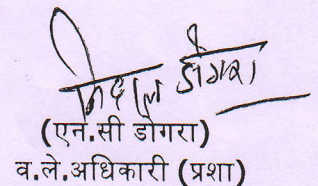 डोगरा
(एन.सी डोगरा)
व.ले.अधिकारी (प्रशा)